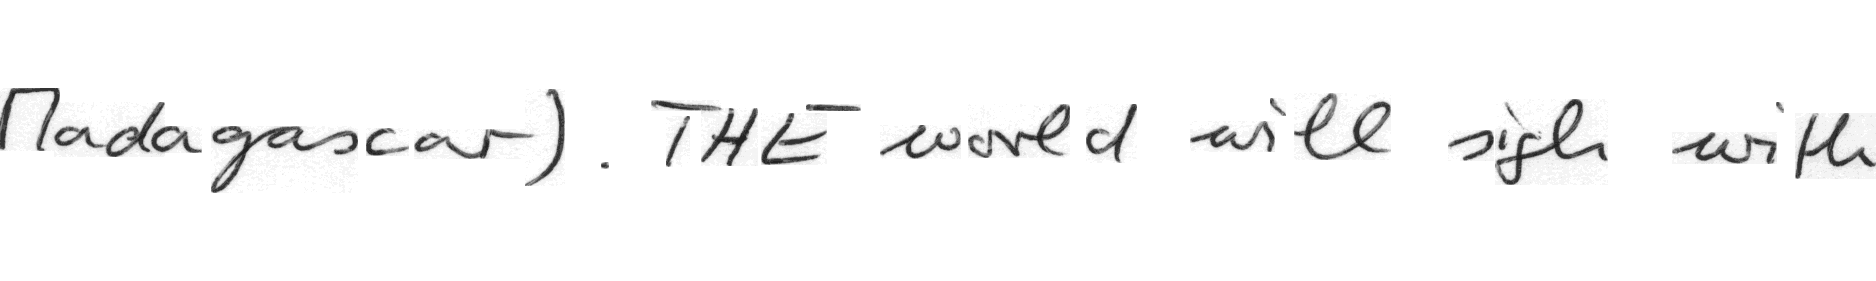 Madagascar). THE world will sigh with